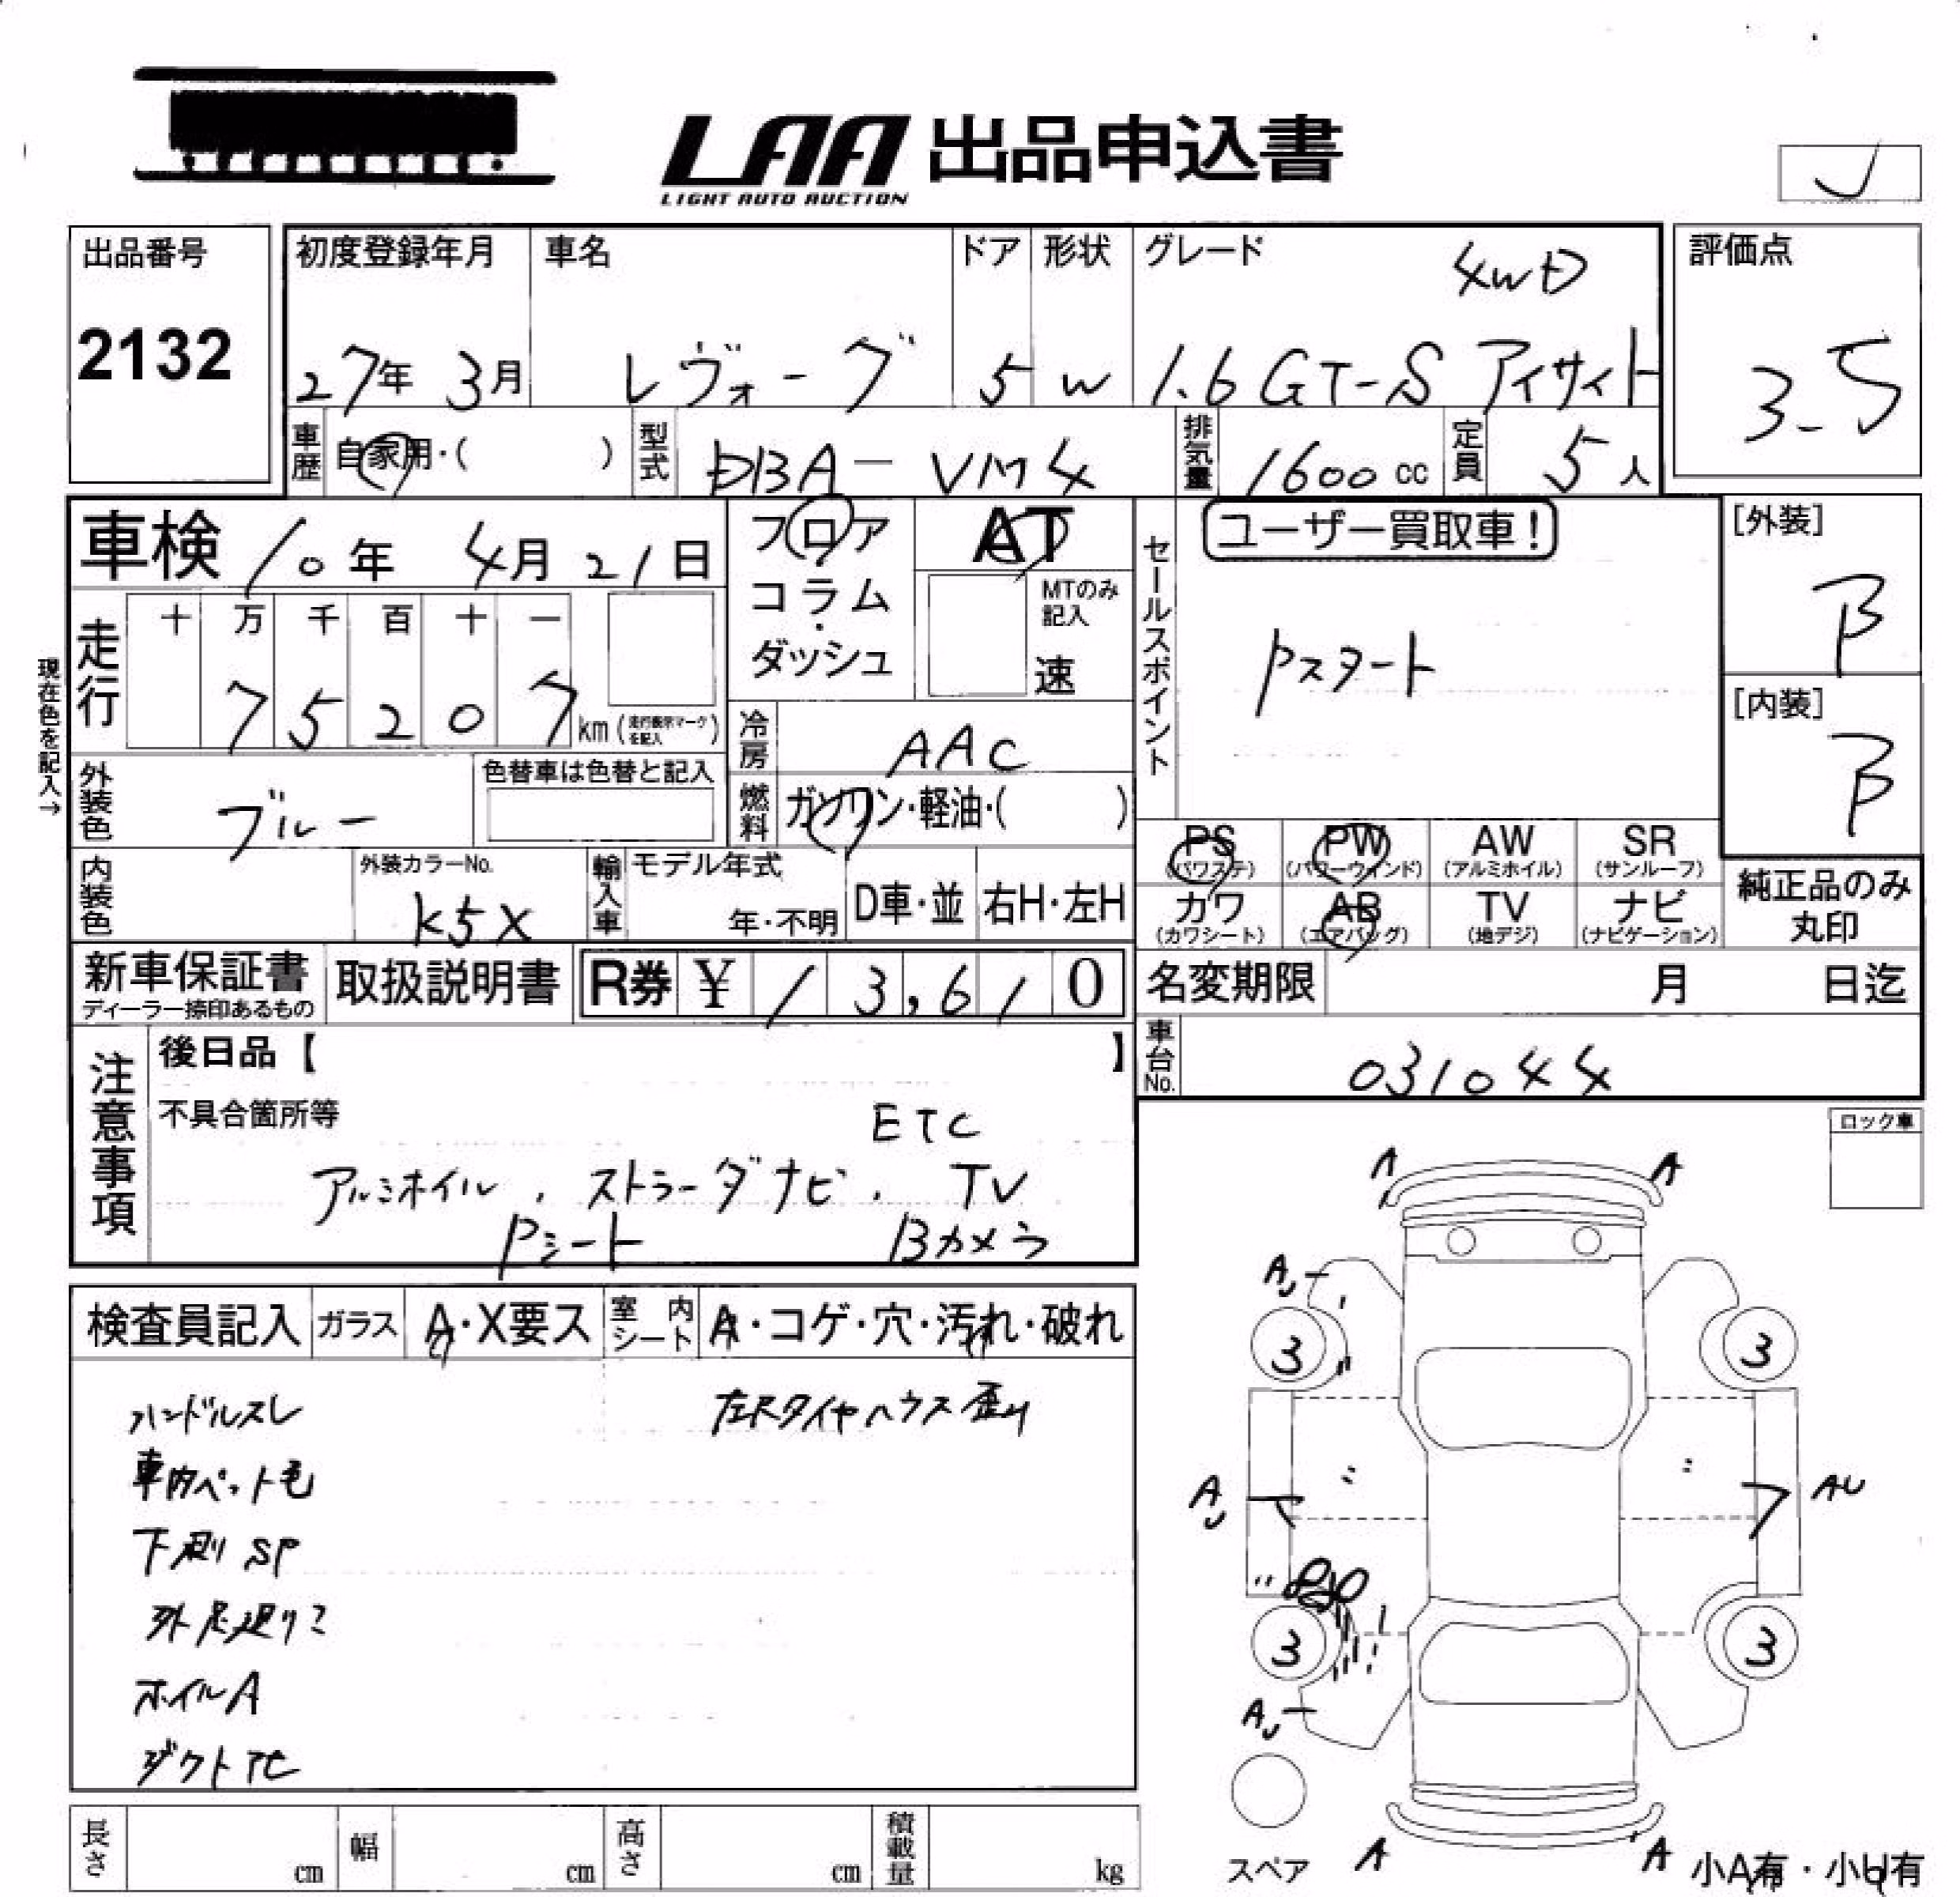 LAA 出品申込書
LIGHT AUTO AUCTION
出品番号
2132
初度登録年月
27年 3月
車名
レヴォーグ
ドア
5
形状
W
グレード
4WD
1.6 GT-S アイサイト
評価点
3.5
車歴
自家用・( )
型式
DBA-VM4
排気量
1600 cc
定員
5人
車検 10年 4月 21日
フロア
コラム
ダッシュ
AT
MTのみ記入
速
セールスポイント
ユーザー買取車!
Pスタート
[外装]
B
[内装]
B
現在色を記入→
走行
十 万 千 百 十 一
7 5 2 0 7 km (走行表示マークを記入)
冷房
AAC
燃料
ガソリン・軽油・( )
外装色
ブルー
色替車は色替と記入
内装色
外装カラーNo.
K5X
輸入車
モデル年式
年・不明
D車・並
右H・左H
PS (パワステ)
PW (パワーウィンド)
AW (アルミホイル)
SR (サンルーフ)
カワ (カワシート)
AB (エアバッグ)
TV (地デジ)
ナビ (ナビゲーション)
純正品のみ
丸印
新車保証書
ディーラー捺印あるもの
取扱説明書
R券 ¥ 13,610
名変期限 月 日迄
車台No.
031044
注意事項
後日品【 】
不具合箇所等
ETC
アルミホイル, ストラーダナビ, TV
Pシート Bカメラ
ロック車
検査員記入
ガラス
A・X要ス
室内シート
A・コゲ・穴・汚れ・破れ
ハンドルスレ
車内ペット毛
下廻りSP
ホイルA
A A
A
3 3
A AU
3 3
A
A A
スペア
小A有・小U有
長さ cm
幅 cm
高さ cm
積載量 kg